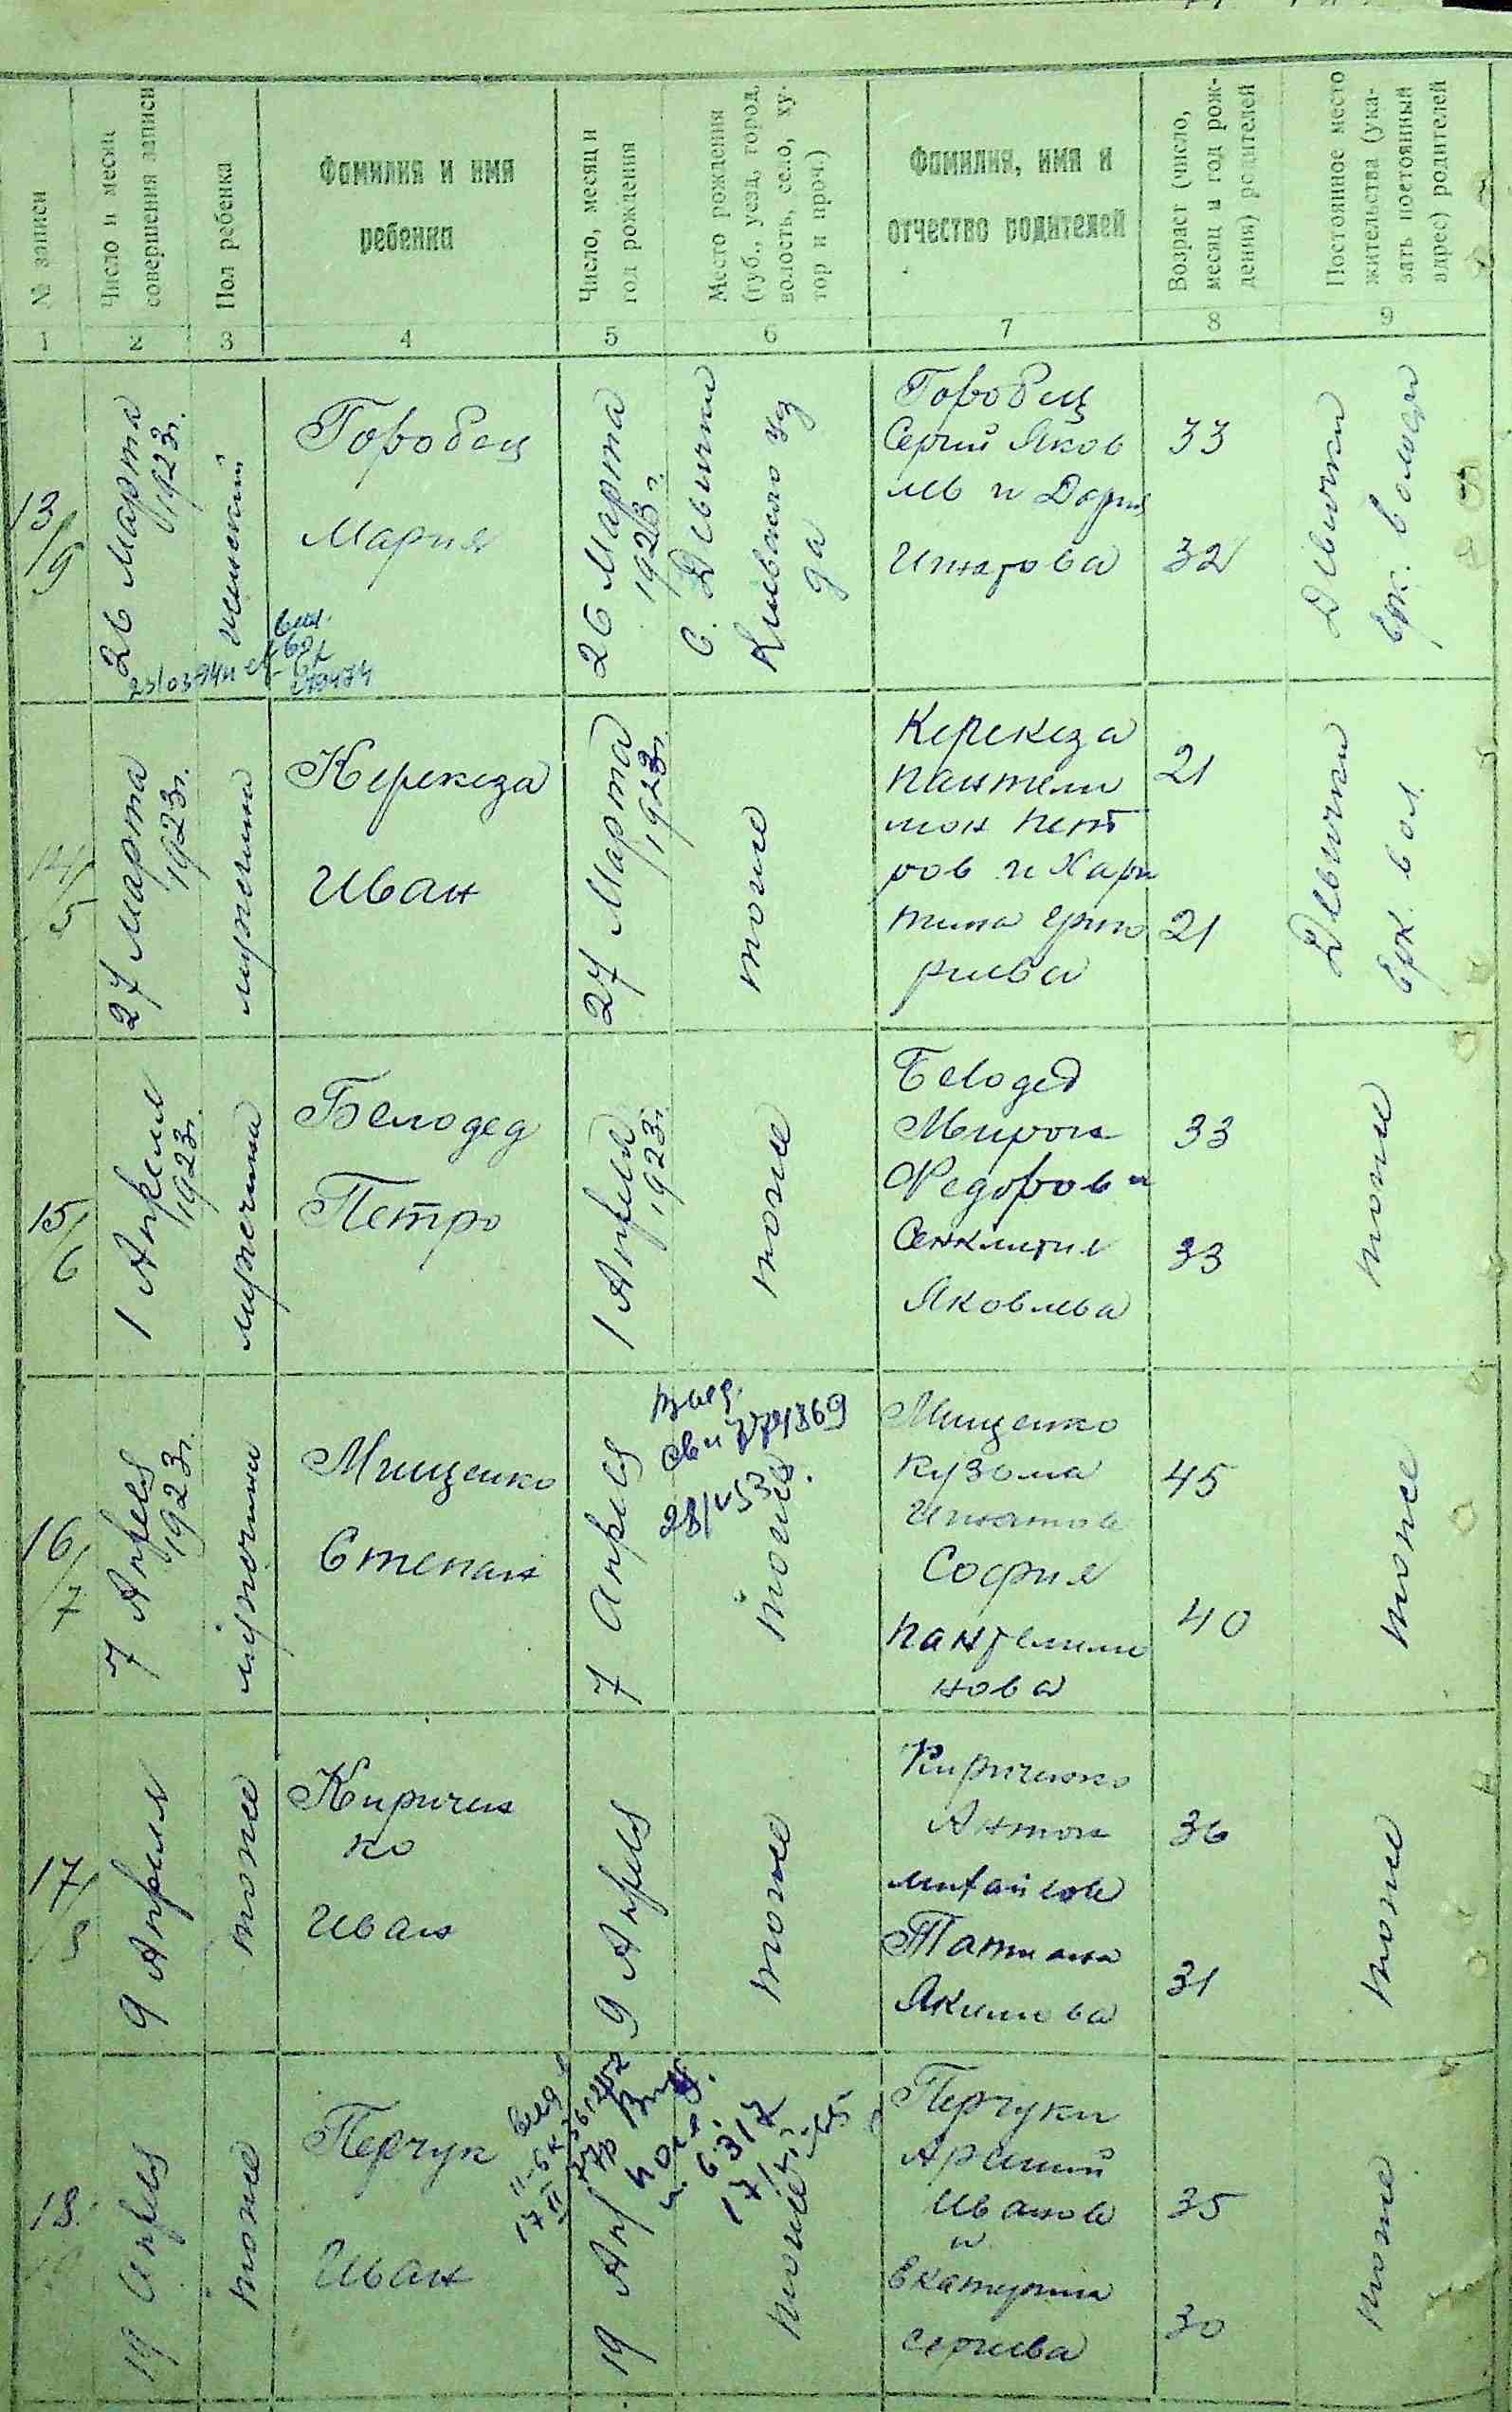 № записи
Число и месяц
совершения записи
Пол ребенка
Фамилия и имя
ребенка
Число, месяц и
год рождения
Место рождения
(губ., уезд, город,
волость, село, ху-
тор и проч.)
Фамилия, имя и
отчество родителей
Возраст (число,
месяц и год рож-
дения) родителей
Постоянное место
жительства (ука-
зать постоянный
адрес) родителей
1 2 3 4 5 6 7 8 9
13/9
26 Марта
1923г.
женский
Горобец
Мария
26 Марта
1923г.
с. Девички
Киевского уез
да
Горобец
Сергий Яков
лев и Дария
Игнатова
33
32
Девички
14/5
27 Марта
1923г.
мужчина
Керекеза
Иван
27 Марта
1923г.
тоже
Керекеза
Пантели
мон Пет
ров и Хари
тина Григо
риева
21
21
Девички
вол.
15/6
1 Апреля
1923г.
мужчина
Белодед
Петро
1 Апреля
1923г.
тоже
Белодед
Мирон
Федоров и
Сенклития
Яковлева
33
33
тоже
16/7
7 Апреля
1923г.
мужчина
Мищенко
Степан
7 апреля
тоже
Мищенко
Кузьма
Игнатов
София
Пантелимо
нова
45
40
тоже
17/8
9 Апреля
тоже
Киричен
ко
Иван
9 Апреля
тоже
Кириченко
Антон
Михайлов
Татиана
Якимова
36
31
тоже
18
19 Апреля
тоже
Перчук
Иван
19 Апр
тоже
Перчуки
Иванов
и
Екатерина
Сергиева
35
30
тоже